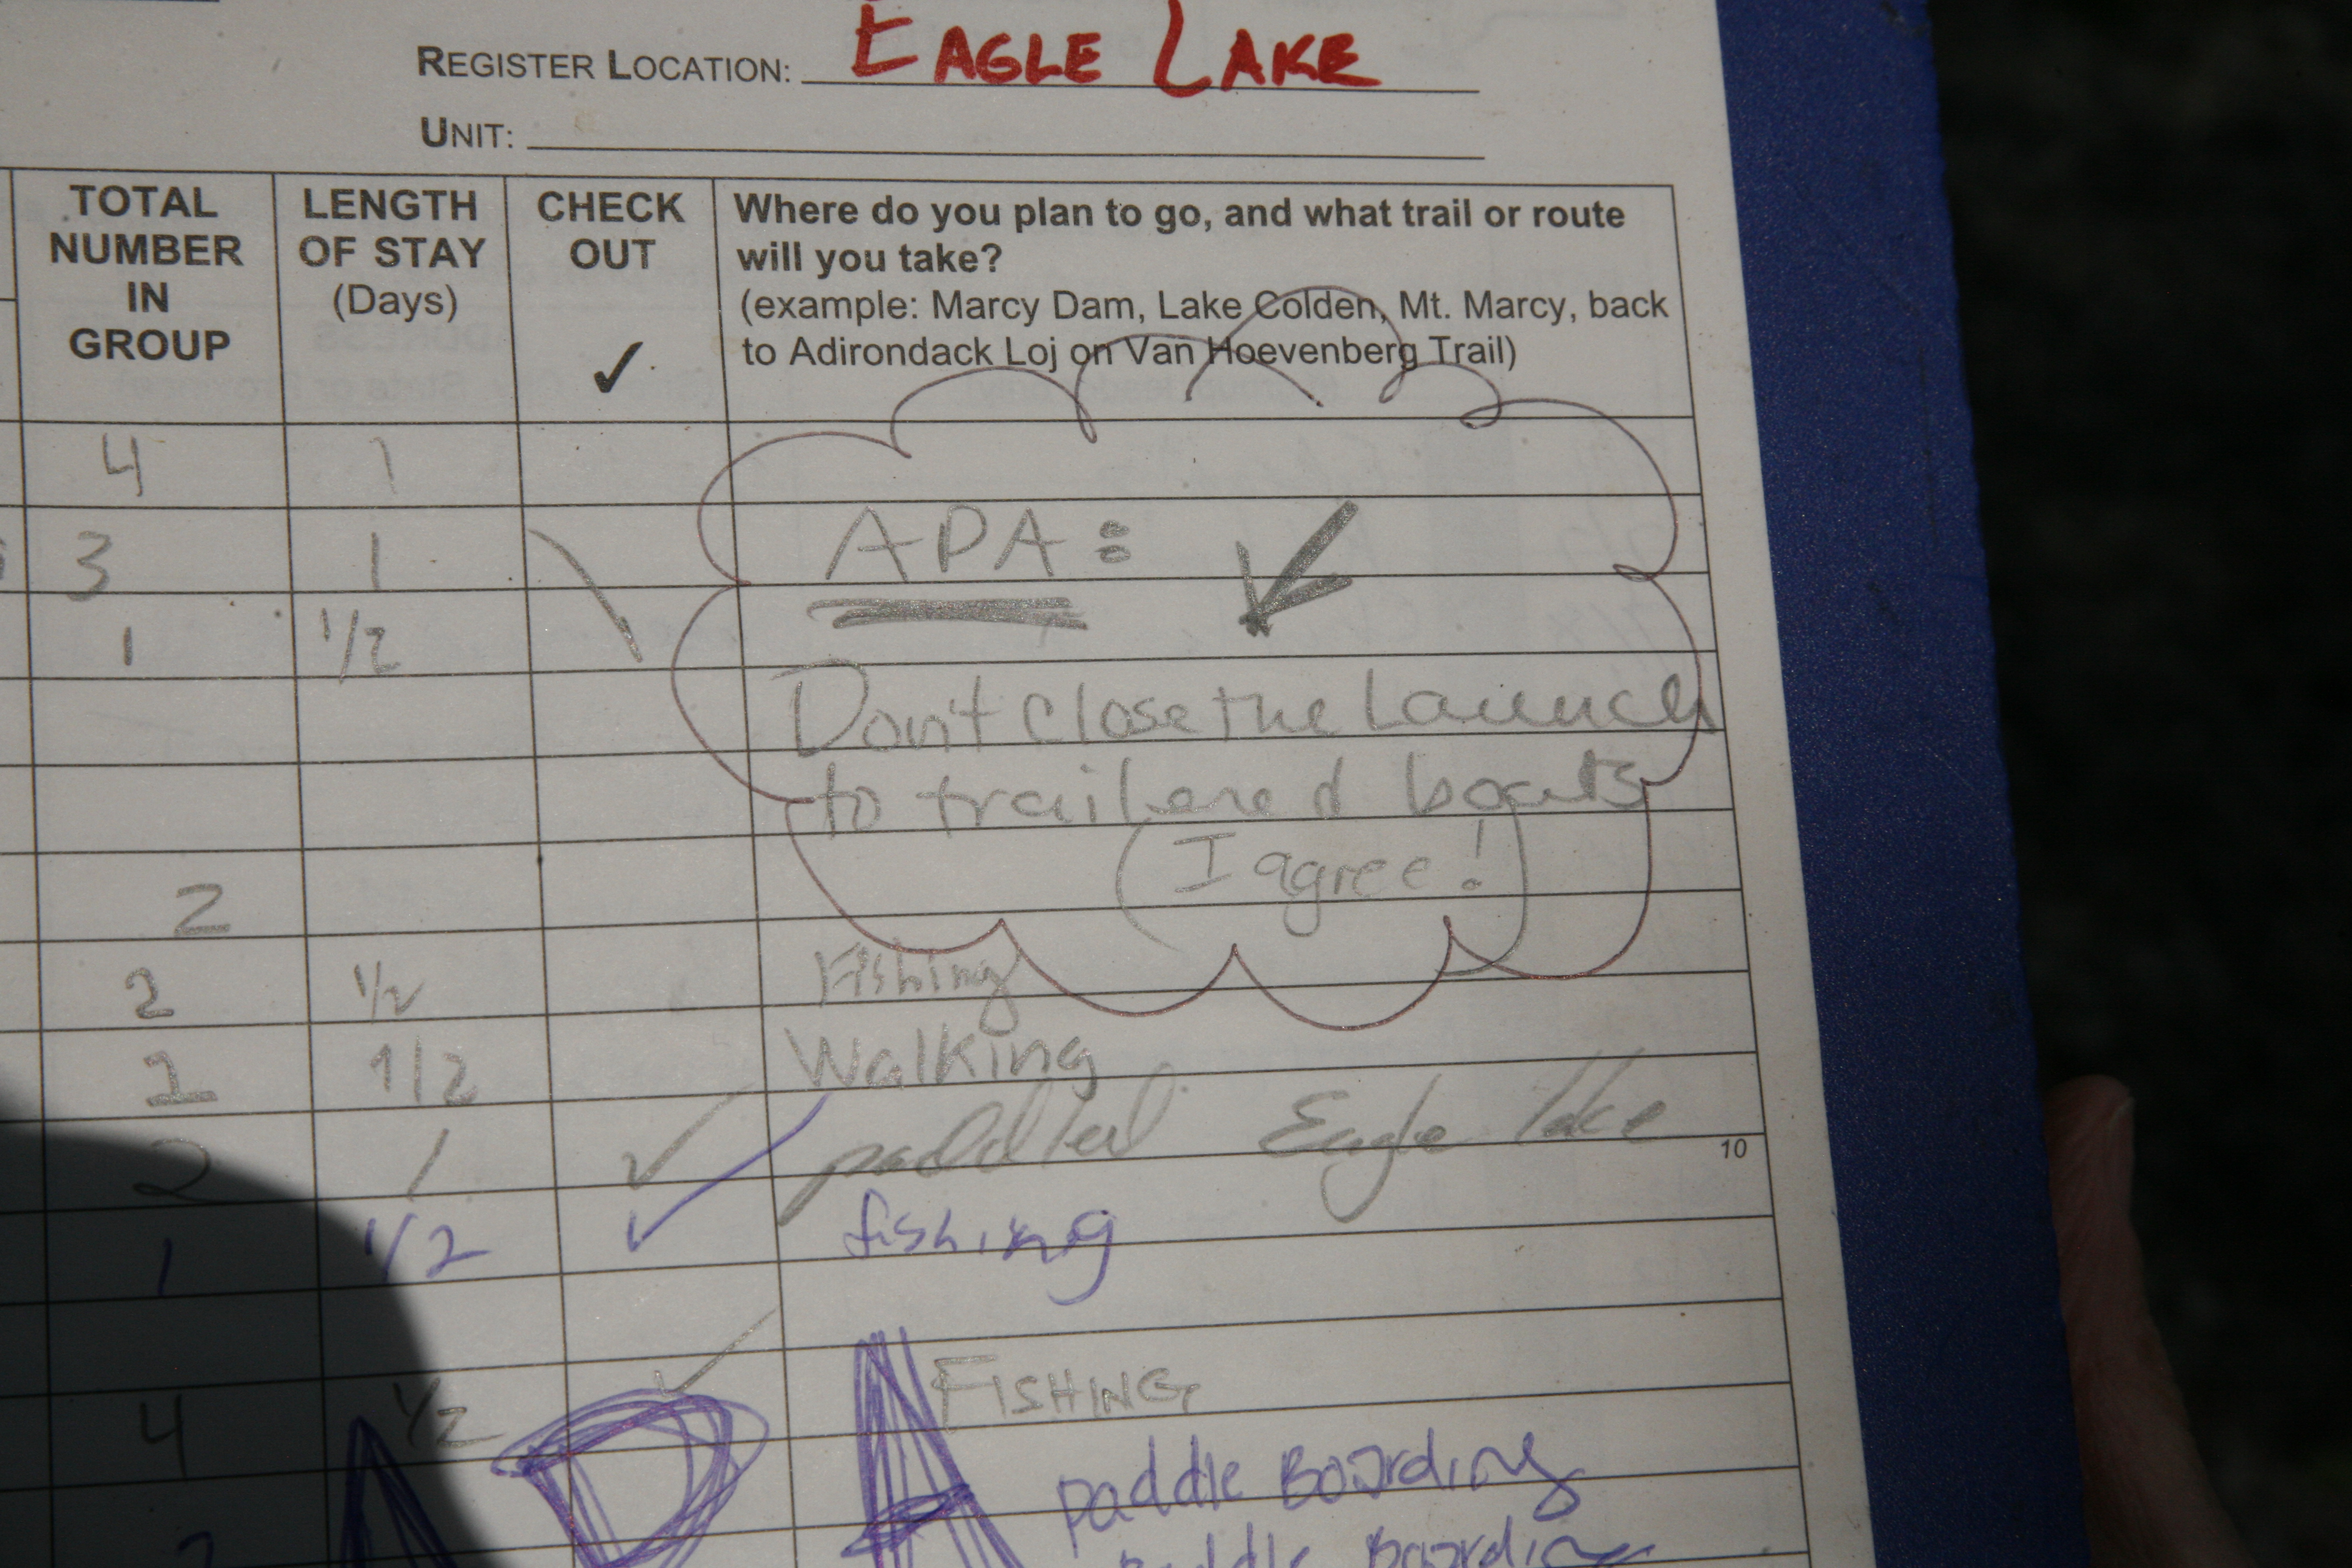 REGISTER LOCATION: EAGLE LAKE
UNIT:
TOTAL NUMBER IN GROUP
LENGTH OF STAY (Days)
CHECK OUT ✓
Where do you plan to go, and what trail or route
will you take?
(example: Marcy Dam, Lake Colden, Mt. Marcy, back
to Adirondack Loj on Van Hoevenberg Trail)
4 1
3 1 APA:
1 1/2
Don't close the Launch
to trailered boats
2 (I agree!)
2 1/2 Fishing
2 1/2 Walking
2 1 ✓ paddled Eagle Lake
10
1 1/2 ✓ fishing
4 1/2 ✓ FISHING
APA
paddle Boarding
paddle Boarding